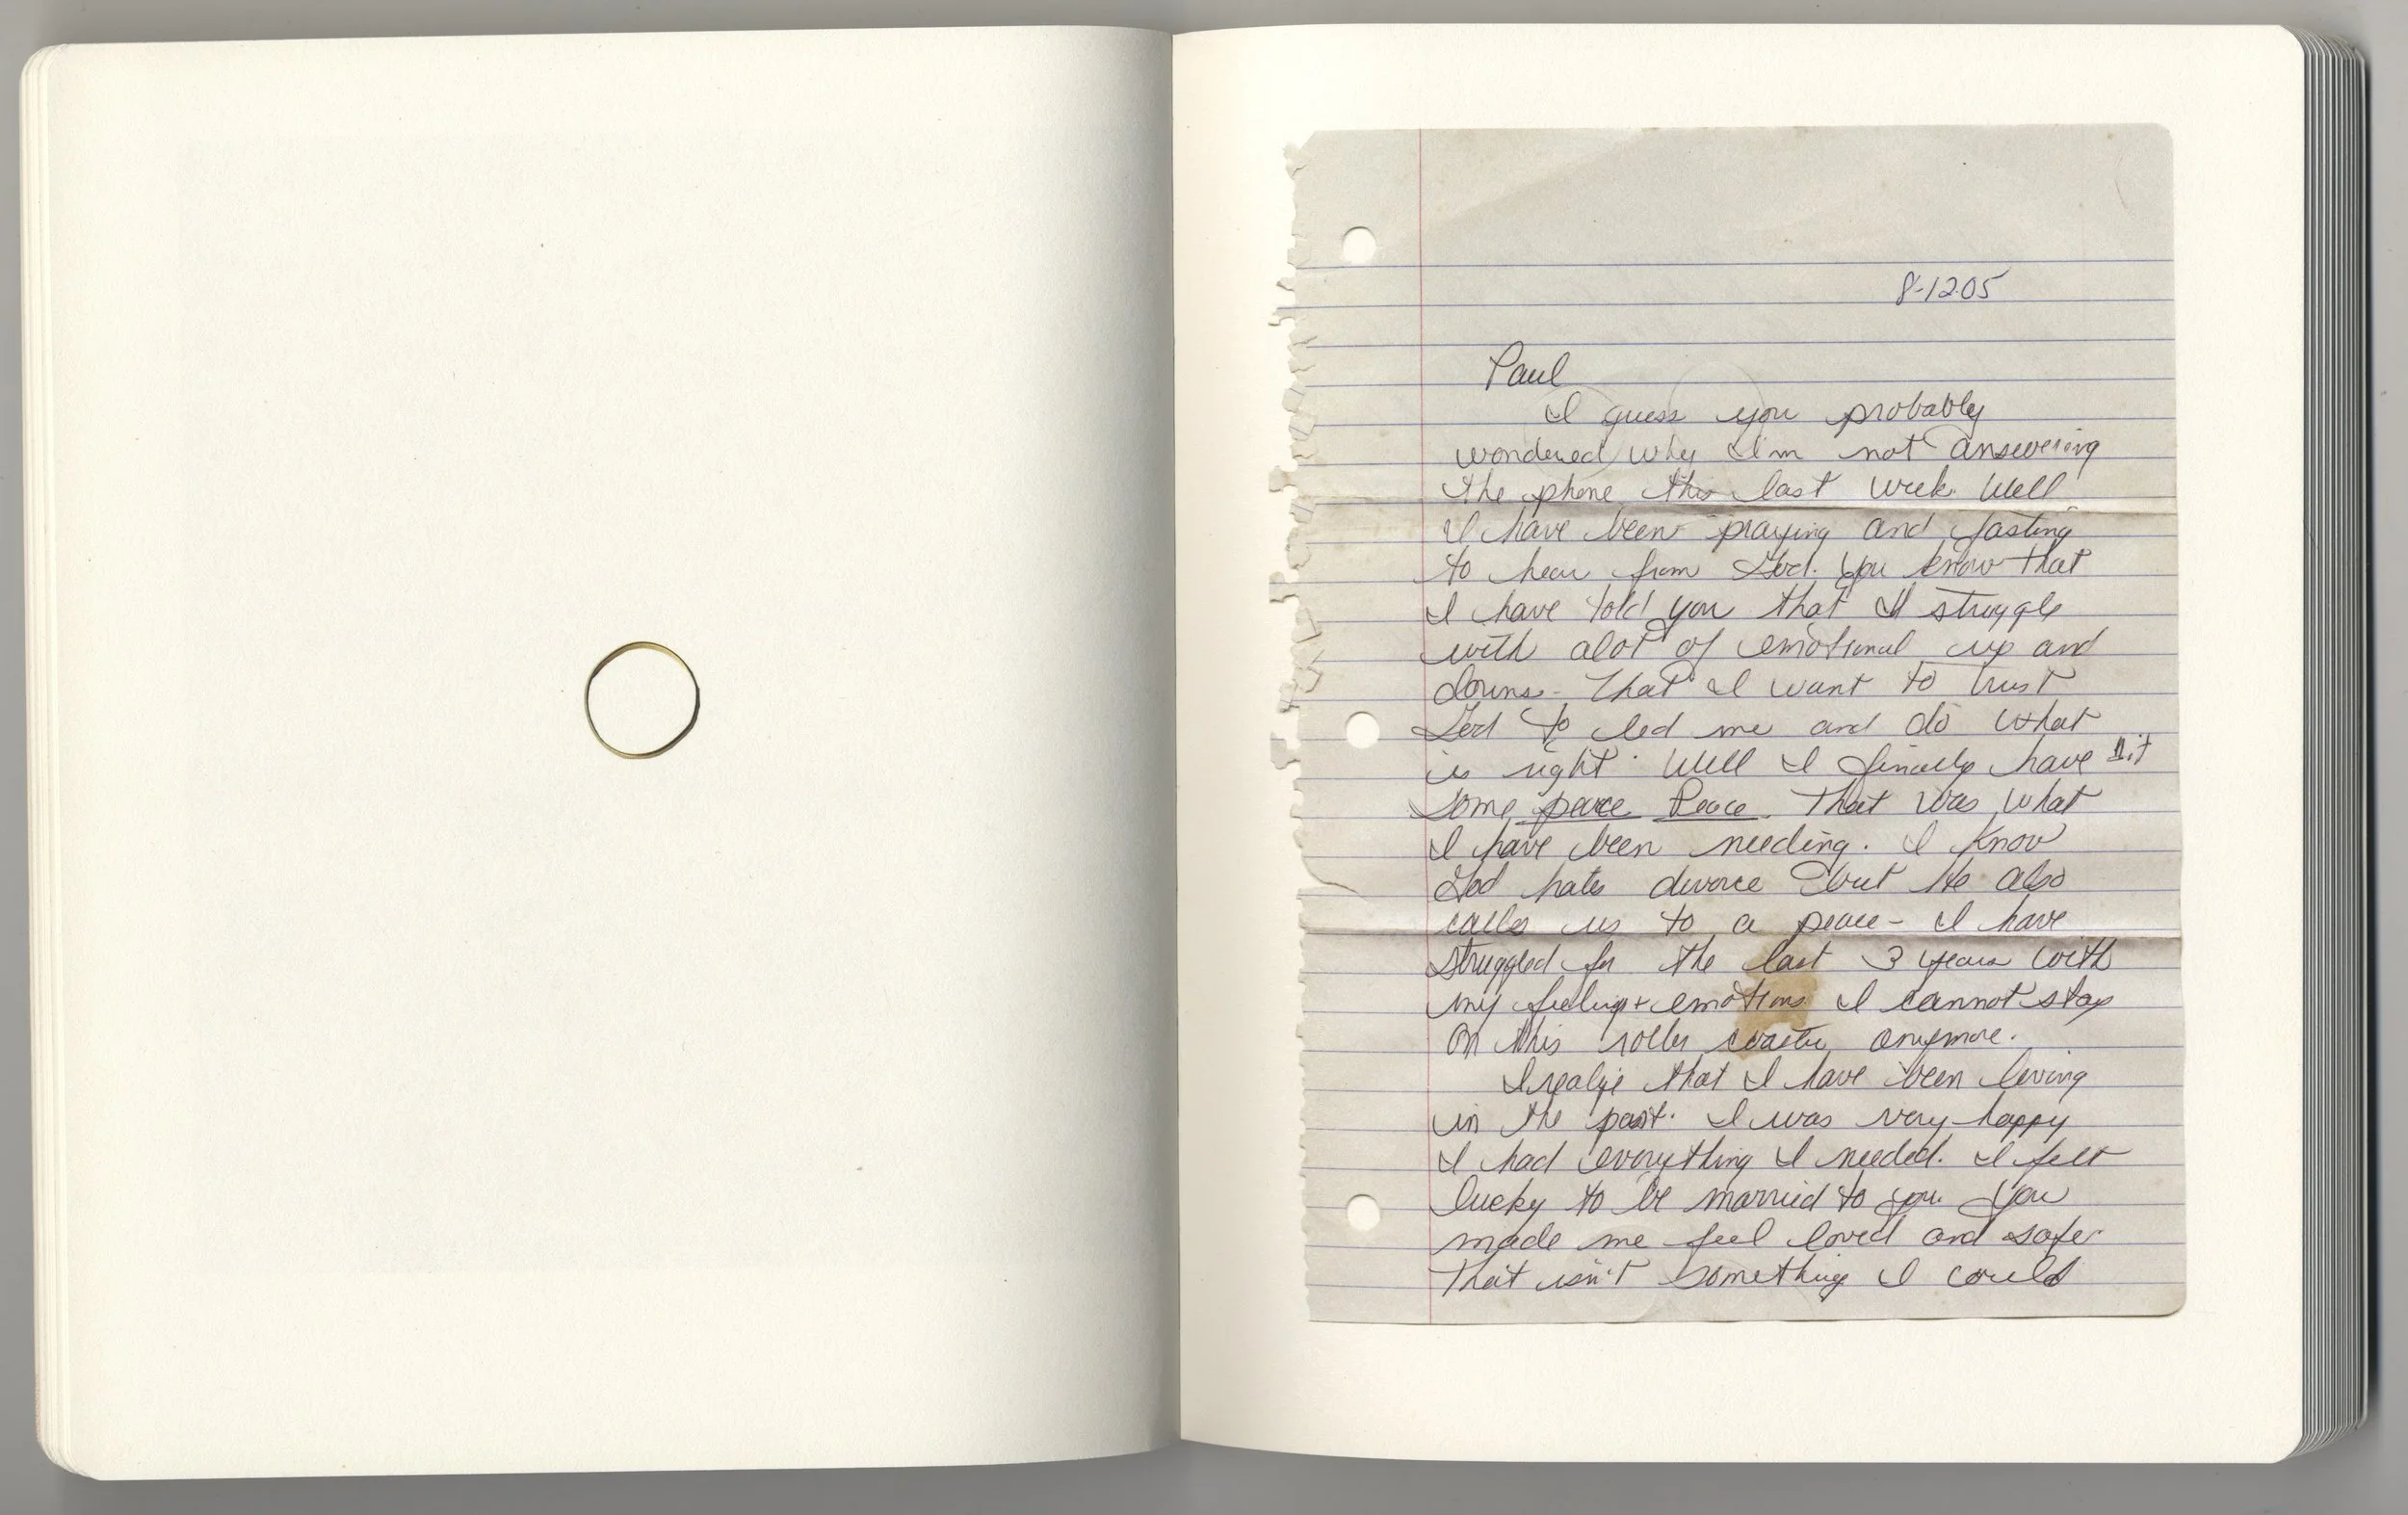 8-12-05
Paul
I guess you probably
wondered why I'm not answering
the phone this last week. Well
I have been praying and fasting
to hear from God. You know that
I have told you that I struggle
with alot of emotional up and
downs - That I want to trust
God to led me and do what
is right. Well I finally have it
some peace Peace. That was what
I have been needing. I know
God hates divorce but He also
calls us to a peace - I have
struggled for the last 3 years with
my feelings + emotions I cannot stay
on this roller coaster anymore.
I realize that I have been living
in the past. I was very happy
I had everything I needed. I felt
lucky to be married to you. You
made me feel loved and safe.
That isn't something I could